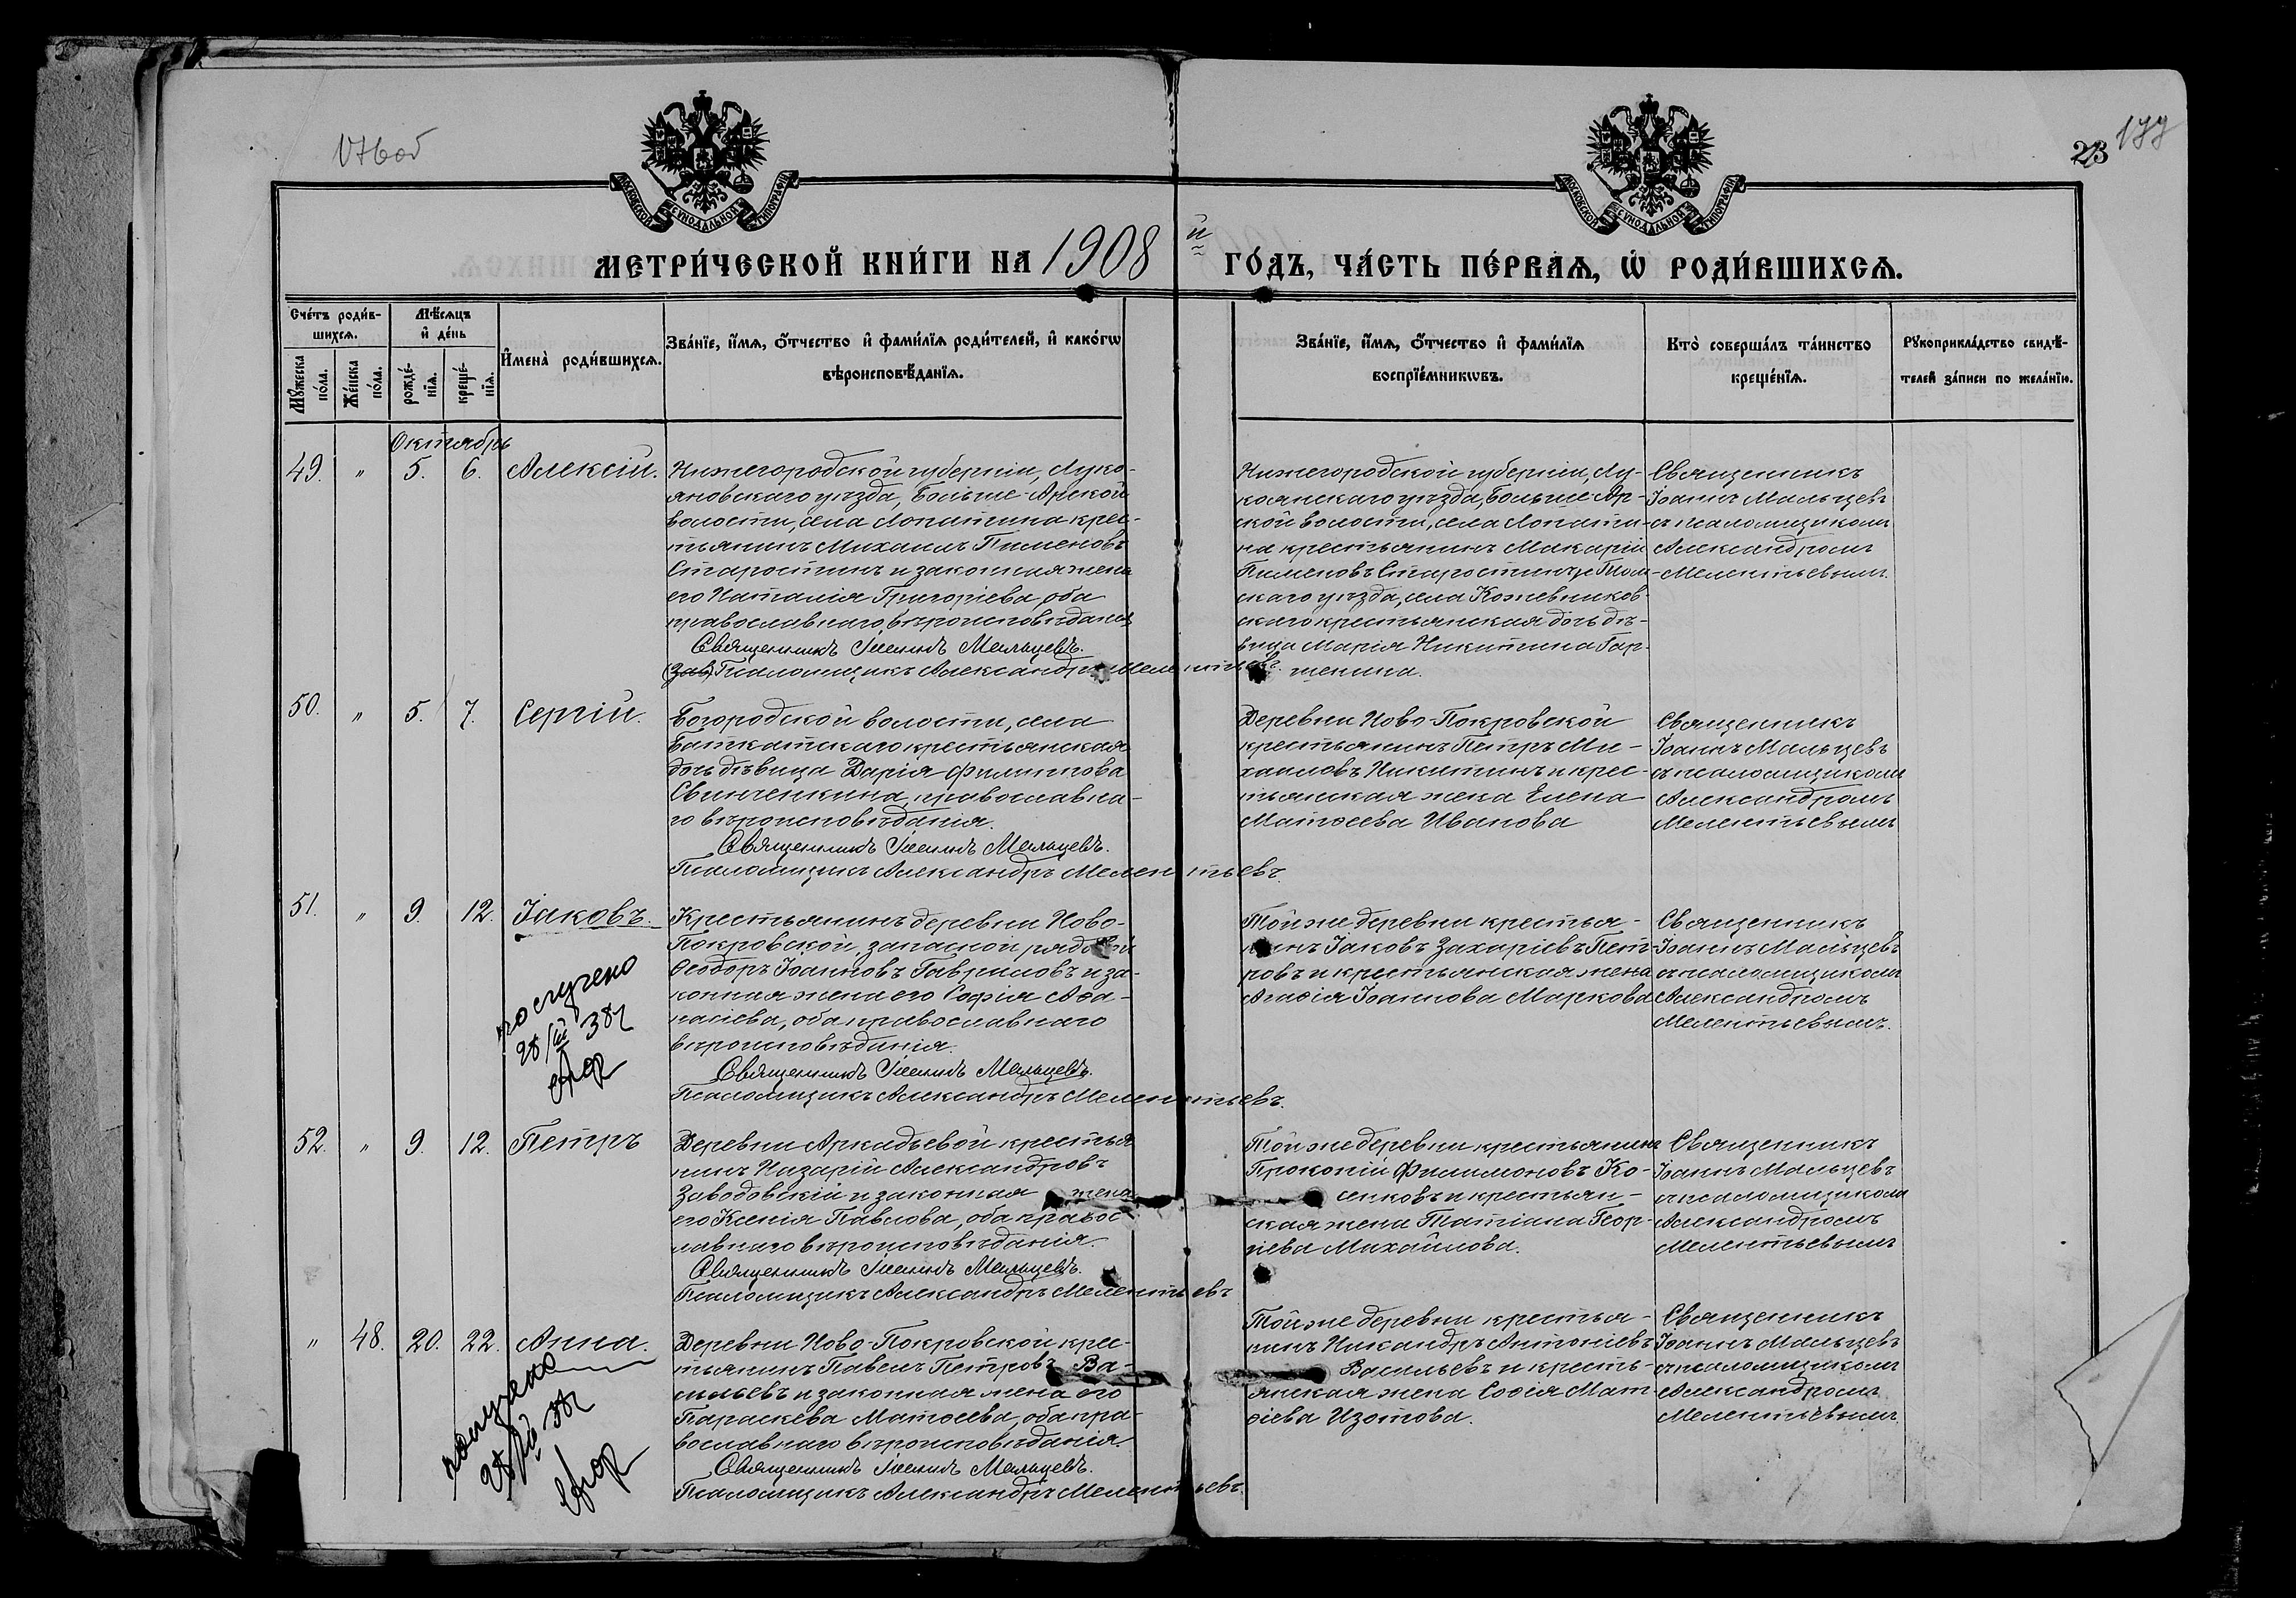 23
177
МОСКОВСКОЙ СѴНОДАЛЬНОЙ ТИПОГРАФІИ
МОСКОВСКОЙ СѴНОДАЛЬНОЙ ТИПОГРАФІИ
МЕТРИ́ЧЕСКОЙ КНИ́ГИ НА 1908 й ГО́ДЪ, ЧА́СТЬ ПЕ́РВАЯ, Ѡ҆ РОДИ́ВШИХСѦ.
Сче́тъ роди́в-
шихсѧ.
Мꙋ́жеска по́ла.
Же́нска по́ла.
Мѣ́сѧцъ
и҆ де́нь
рожде́-
нїѧ.
креще́-
нїѧ.
И҆мена̀ роди́вшихсѧ.
Зва́нїе, и҆́мѧ, ѻ҆́тчество и҆ фами́лїѧ роди́телей, и҆ како́гѡ
вѣроисповѣ́данїѧ.
Зва́нїе, и҆́мѧ, ѻ҆́тчество и҆ фами́лїѧ
воспрїе́мникѡвъ.
Кто̀ соверша́лъ та́инство
креще́нїѧ.
Рꙋкоприкла́дство свидѣ́-
телей за́писи по жела́нїю.
Октябрь
49. " 5. 6. Алексій.
Нижегородской губерніи, Луко-
яновскаго уѣзда, Больше-Арской
волости, села Лопатина крес-
тьянинъ Михаилъ Пименовъ
Старостинъ и законная жена
его Наталія Григоріева, оба
православнаго вѣроисповѣданія
Священникъ Іоаннъ Мальцевъ.
Псаломщикъ Александръ Мелентьевъ.
Нижегородской губерніи, Лу-
коянскаго уѣзда, Больше-Ар-
ской волости, села Лопати-
на крестьянинъ Макарій
Пименовъ Старостинъ и Том-
скаго уѣзда, села Кожевников-
скаго крестьянская дочь дѣ-
вица Марія Никитина Гар-
шенина.
Священникъ
Іоаннъ Мальцевъ
съ псаломщикомъ
Александромъ
Мелентьевымъ.
50. " 5. 7. Сергій.
Богородской волости, села
Баткатскаго крестьянская
дочь дѣвица Дарія Филиппова
Свинченкина, православна-
го вѣроисповѣданія.
Священникъ Іоаннъ Мальцевъ.
Псаломщикъ Александръ Мелентьевъ.
Деревни Ново-Покровской
крестьянинъ Петръ Ми-
хаиловъ Никитинъ и крес-
тьянская жена Елена
Матѳеева Иванова
Священникъ
Іоаннъ Мальцевъ
съ псаломщикомъ
Александромъ
Мелентьевымъ
51. " 9. 12. Іаковъ.
получено
28/III 38г
Крестьянинъ деревни Ново-
Покровской, запасной рядовой
Ѳеодоръ Іоанновъ Гавриловъ и за-
конная жена его Софія Аѳа-
насіева, оба православнаго
вѣроисповѣданія.
Священникъ Іоаннъ Мальцевъ.
Псаломщикъ Александръ Мелентьевъ.
Той же деревни крестья-
нинъ Іаковъ Захаріевъ Пет-
ровъ и крестьянская жена
Агаѳія Іоаннова Маркова
Священникъ
Іоаннъ Мальцевъ
съ псаломщикомъ
Александромъ
Мелентьевымъ.
52. " 9. 12. Петръ
Деревни Аркадьевой крестья
нинъ Назарій Александровъ
Заводовскій и законная жена
его Ксенія Павлова, оба правос
лавнаго вѣроисповѣданія.
Священникъ Іоаннъ Мальцевъ.
Псаломщикъ Александръ Мелентьевъ
Той же деревни крестьянинъ
Прокопій Филимоновъ Ко-
сенковъ и крестьян-
ская жена Татіана Геор-
гіева Михайлова.
Священникъ
Іоаннъ Мальцевъ
съ псаломщикомъ
Александромъ
Мелентьевымъ
" 48. 20. 22. Анна.
получено
Деревни Ново-Покровской крес-
тьянинъ Павелъ Петровъ Ва-
сильевъ и законная жена его
Параскева Матѳеева, оба пра-
вославнаго вѣроисповѣданія.
Священникъ Іоаннъ Мальцевъ.
Псаломщикъ Александръ Мелентьевъ.
Той же деревни крестья-
нинъ Никандръ Антоніевъ
Васильевъ и кресть-
янская жена Софія Мат-
ѳіева Изотова.
Священникъ
Іоаннъ Мальцевъ
съ псаломщикомъ
Александромъ
Мелентьевымъ.